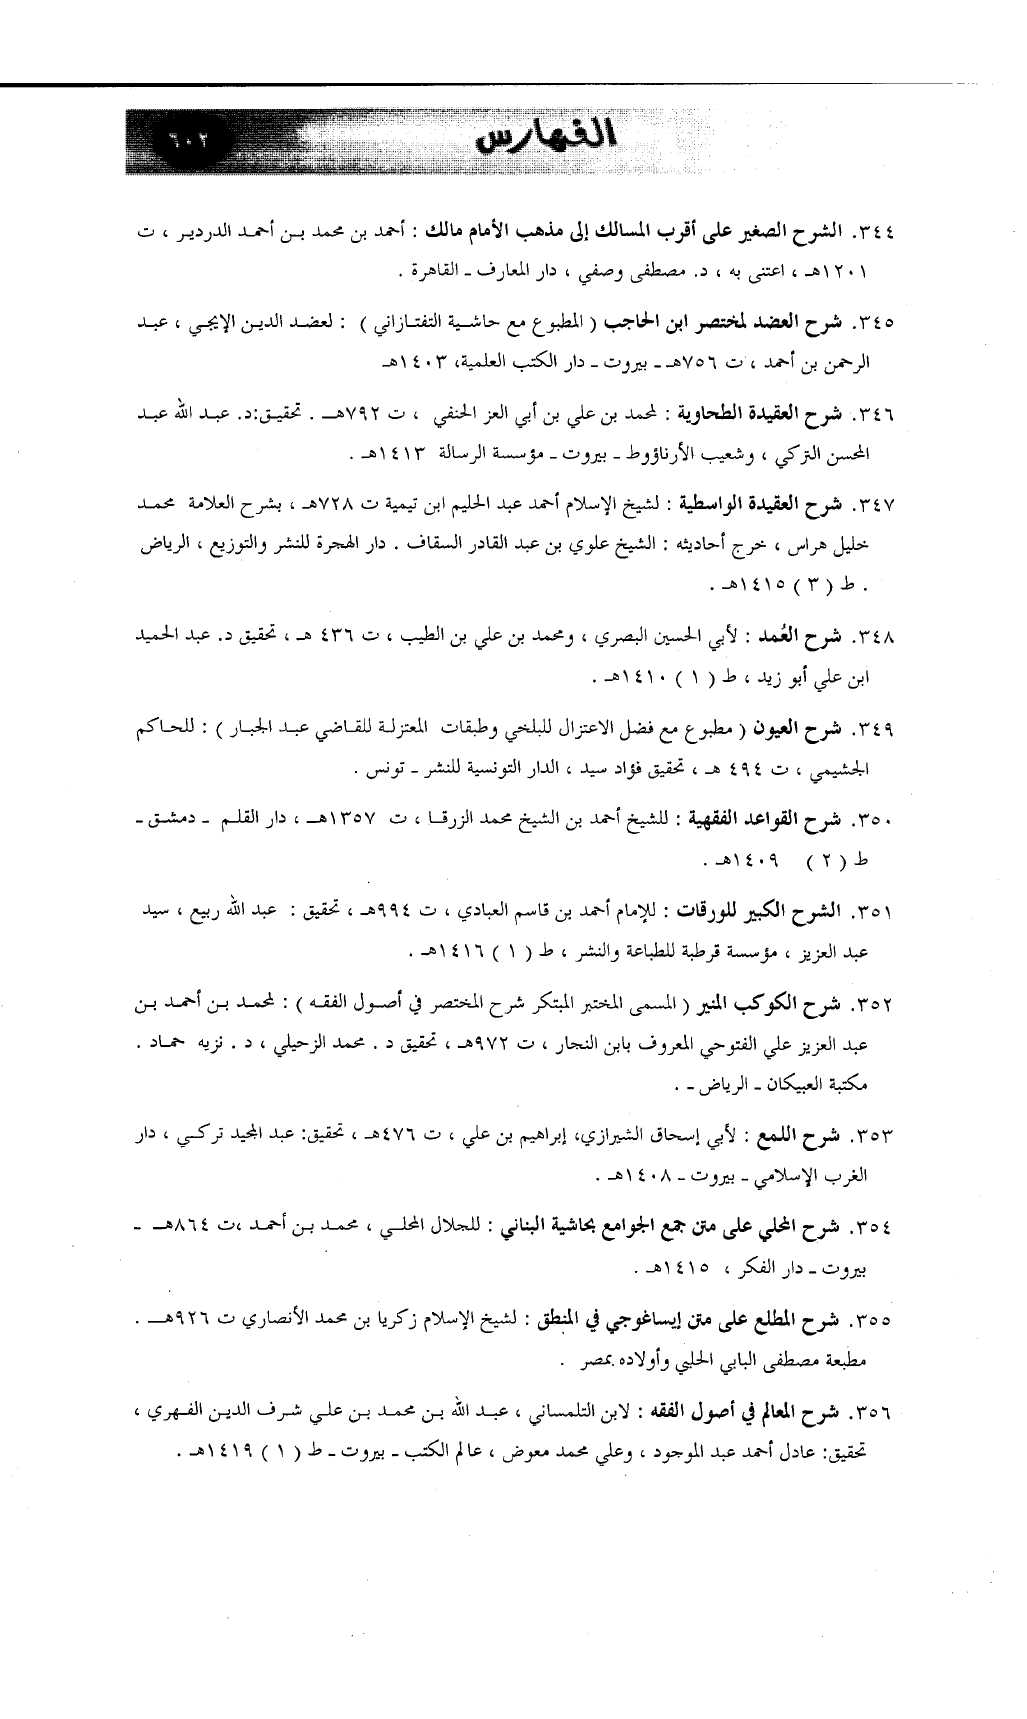 الفهارس
٦٠٢
٣٤٤. الشرح الصغير على أقرب المسالك إلى مذهب الأمام مالك : أحمد بن محمد بن أحمد الدردير ، ت
١٢٠١هـ ، اعتنى به ، د. مصطفى وصفي ، دار المعارف ـ القاهرة .
٣٤٥. شرح العضد لمختصر ابن الحاجب ( المطبوع مع حاشية التفتازاني ) : لعضد الدين الإيجي ، عبد
الرحمن بن أحمد ، ت ٧٥٦هـ ـ بيروت ـ دار الكتب العلمية، ١٤٠٣هـ
٣٤٦. شرح العقيدة الطحاوية : لمحمد بن علي بن أبي العز الحنفي ، ت ٧٩٢هـ . تحقيق:د. عبد الله عبد
المحسن التركي ، وشعيب الأرناؤوط ـ بيروت ـ مؤسسة الرسالة ١٤١٣هـ .
٣٤٧. شرح العقيدة الواسطية : لشيخ الإسلام أحمد عبد الحليم ابن تيمية ت ٧٢٨هـ ، بشرح العلامة محمد
خليل هراس ، خرج أحاديثه : الشيخ علوي بن عبد القادر السقاف . دار الهجرة للنشر والتوزيع ، الرياض
. ط ( ٣ ) ١٤١٥هـ .
٣٤٨. شرح العُمد : لأبي الحسين البصري ، ومحمد بن علي بن الطيب ، ت ٤٣٦ هـ ، تحقيق د. عبد الحميد
ابن علي أبو زيد ، ط ( ١ ) ١٤١٠هـ .
٣٤٩. شرح العيون ( مطبوع مع فضل الاعتزال للبلخي وطبقات المعتزلة للقاضي عبد الجبار ) : للحاكم
الجشيمي ، ت ٤٩٤ هـ ، تحقيق فؤاد سيد ، الدار التونسية للنشر ـ تونس .
٣٥٠. شرح القواعد الفقهية : للشيخ أحمد بن الشيخ محمد الزرقا ، ت ١٣٥٧هـ ، دار القلم ـ دمشق ـ
ط ( ٢ ) ١٤٠٩هـ .
٣٥١. الشرح الكبير للورقات : للإمام أحمد بن قاسم العبادي ، ت ٩٩٤هـ ، تحقيق : عبد الله ربيع ، سيد
عبد العزيز ، مؤسسة قرطبة للطباعة والنشر ، ط ( ١ ) ١٤١٦هـ .
٣٥٢. شرح الكوكب المنير ( المسمى المختبر المبتكر شرح المختصر في أصول الفقه ) : لمحمد بن أحمد بن
عبد العزيز علي الفتوحي المعروف بابن النجار ، ت ٩٧٢هـ ، تحقيق د . محمد الزحيلي ، د . نزيه حماد .
مكتبة العبيكان ـ الرياض ـ .
٣٥٣. شرح اللمع : لأبي إسحاق الشيرازي، إبراهيم بن علي ، ت ٤٧٦هـ ، تحقيق: عبد المجيد تركي ، دار
الغرب الإسلامي ـ بيروت ـ ١٤٠٨هـ .
٣٥٤. شرح المحلي على متن جمع الجوامع بحاشية البناني : للجلال المحلي ، محمد بن أحمد ،ت ٨٦٤هـ ـ
بيروت ـ دار الفكر ، ١٤١٥هـ .
٣٥٥. شرح المطلع على متن إيساغوجي في المنطق : لشيخ الإسلام زكريا بن محمد الأنصاري ت ٩٢٦هـ .
مطبعة مصطفى البابي الحلبي وأولاده بمصر .
٣٥٦. شرح المعالم في أصول الفقه : لابن التلمساني ، عبد الله بن محمد بن علي شرف الدين الفهري ،
تحقيق: عادل أحمد عبد الموجود ، وعلي محمد معوض ، عالم الكتب ـ بيروت ـ ط ( ١ ) ١٤١٩هـ .